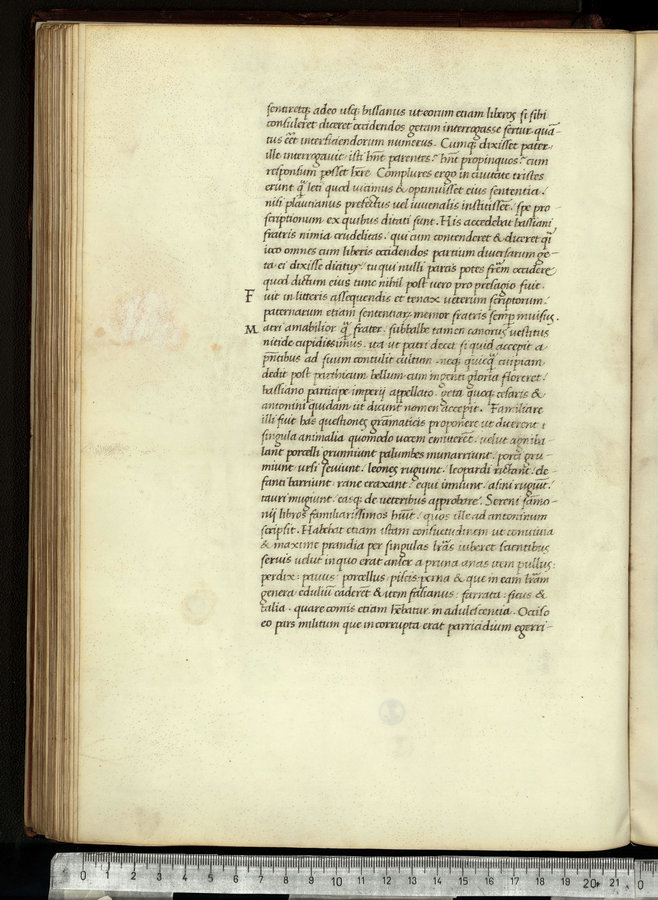 sentiretq; adeo usq; bissanus ut eorum etiam liberos si sibi
consuleret diceret occidendos getam interrogasse fertur quā-
tus eēt interficiendorum numerus. Cumq; dixisset pater
ille interrogavit isti hn̄t parentes? hn̄t propinquos? cum
responsum posset hēre Complures ergo in civitate tristes
erunt q̄ leti quod vicimus & optinuisset eius sententia.
nisi plautianus prefectus vel iuvenalis institissēt. spe pro-
scriptionum ex quibus ditati sunt. His accedebat bassiani
fratris nimia crudelitas. qui cum contenderet & diceret q̄i
ioco omnes cum liberis occidendos partium diversarum ge-
ta ei dixisse dicitur tu qui nulli parcis potes frēm occidere
quod dictum eius tunc nihil post vero pro presagio fuit.
Fuit in litteris assequendis et tenax veterum scriptorum.
paternarum etiam sententiar memor fratris semp invisus.
Maeri amabilior q̄ frater. subbalbe tamen canorus vestitus
nitide cupidissimus. ita ut patri decet si quid accepit a
pn̄tibus ad suum contulit cultum. neq; quicq̄ cuipiam
dedit post parthicum bellum cum ingenti gloria floreret.
bassiano participe imperij appellato. geta quoq; cesaris &
antonini quidam ut dicunt nomen accepit. Familiare
illi fuit has questiones grāmaticis proponere ut dicerent
singula animalia quomodo vocem emitterēt. velut agni ba-
lant porcelli grunniunt palumbes munarriunt. porci gru-
miunt ursi seviunt. leones rugiunt. leopardi rictant. ele
fanti barriunt. rane craxant. equi inniunt. asini rugiūt.
tauri mugiunt. easq; de veteribus approbare. Sereni sāmo-
nij libros familiarissimos hūit. quos ille ad antoninum
scripsit. Habebat etiam istam consuetudinem ut convivia
& maxime prandia per singulas lr̄as iuberet scientibus
servis velut in quo erat anser apruna anas item pullus:
perdix: pavus: porcellus: piscis: perna & que in eam lr̄am
genera edulium caderēt & item fasianus: farrata: ficus &
talia. quare comis etiam hebatur in adulescentia. Occiso
eo pars militum que incorrupta erat parricidium egerri-